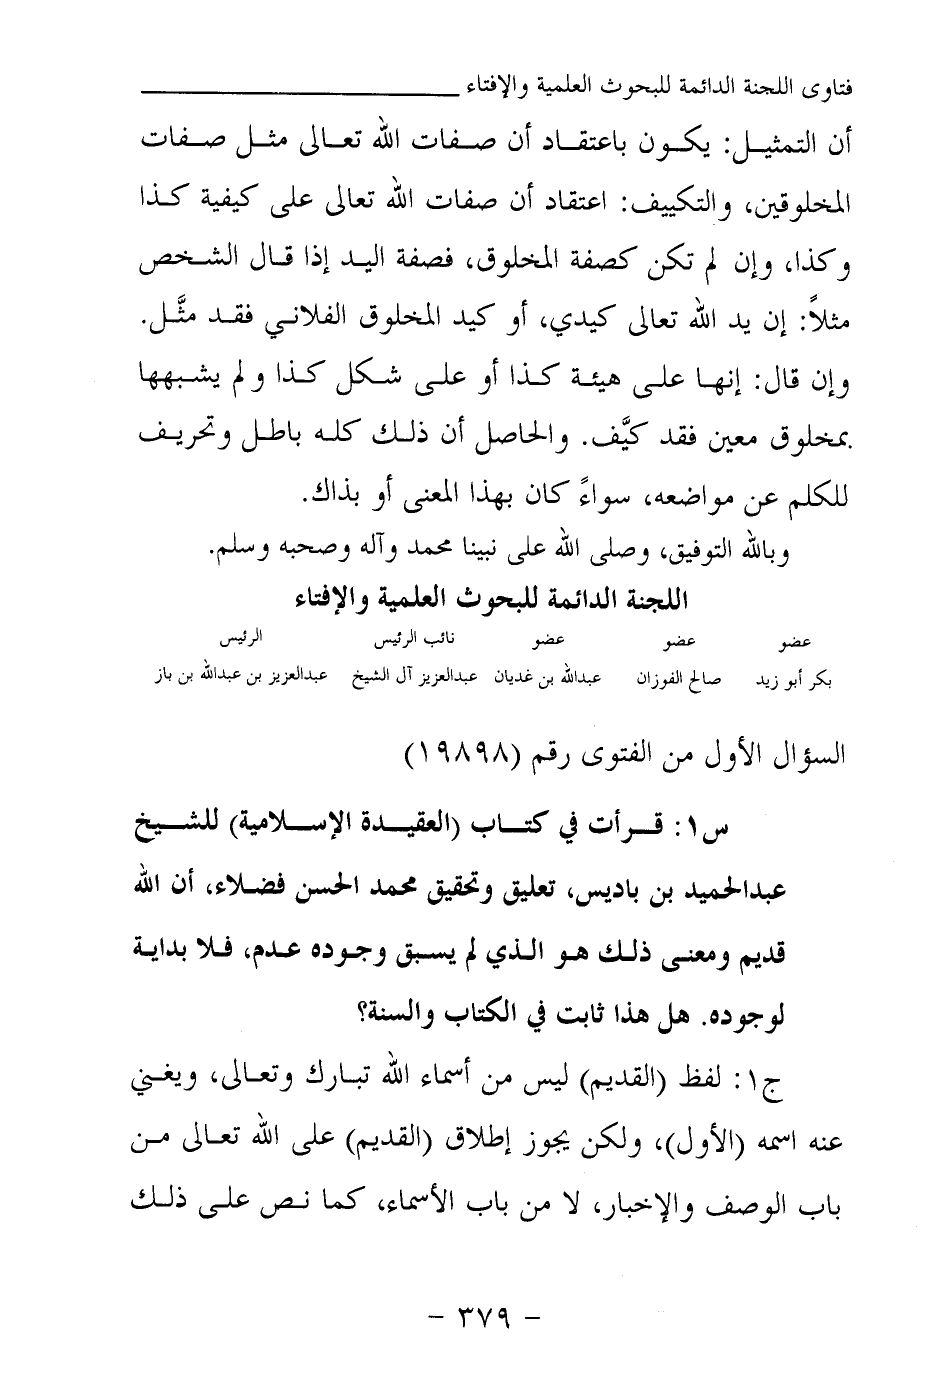 فتاوى اللجنة الدائمة للبحوث العلمية والإفتاء
أن التمثيل: يكون باعتقاد أن صفات الله تعالى مثل صفات
المخلوقين، والتكييف: اعتقاد أن صفات الله تعالى على كيفية كذا
وكذا، وإن لم تكن كصفة المخلوق، فصفة اليد إذا قال الشخص
مثلاً: إن يد الله تعالى كيدي، أو كيد المخلوق الفلاني فقد مثَّل.
وإن قال: إنها على هيئة كذا أو على شكل كذا ولم يشبهها
بمخلوق معين فقد كيَّف. والحاصل أن ذلك كله باطل وتحريف
للكلم عن مواضعه، سواءً كان بهذا المعنى أو بذاك.
وبالله التوفيق، وصلى الله على نبينا محمد وآله وصحبه وسلم.
اللجنة الدائمة للبحوث العلمية والإفتاء
عضو عضو عضو نائب الرئيس الرئيس
بكر أبو زيد صالح الفوزان عبدالله بن غديان عبدالعزيز آل الشيخ عبدالعزيز بن عبدالله بن باز
السؤال الأول من الفتوى رقم (١٩٨٩٨)
س١: قرأت في كتاب (العقيدة الإسلامية) للشيخ
عبدالحميد بن باديس، تعليق وتحقيق محمد الحسن فضلاء، أن الله
قديم ومعنى ذلك هو الذي لم يسبق وجوده عدم، فلا بداية
لوجوده. هل هذا ثابت في الكتاب والسنة؟
ج١: لفظ (القديم) ليس من أسماء الله تبارك وتعالى، ويغني
عنه اسمه (الأول)، ولكن يجوز إطلاق (القديم) على الله تعالى من
باب الوصف والإخبار، لا من باب الأسماء، كما نص على ذلك
- ٣٧٩ -